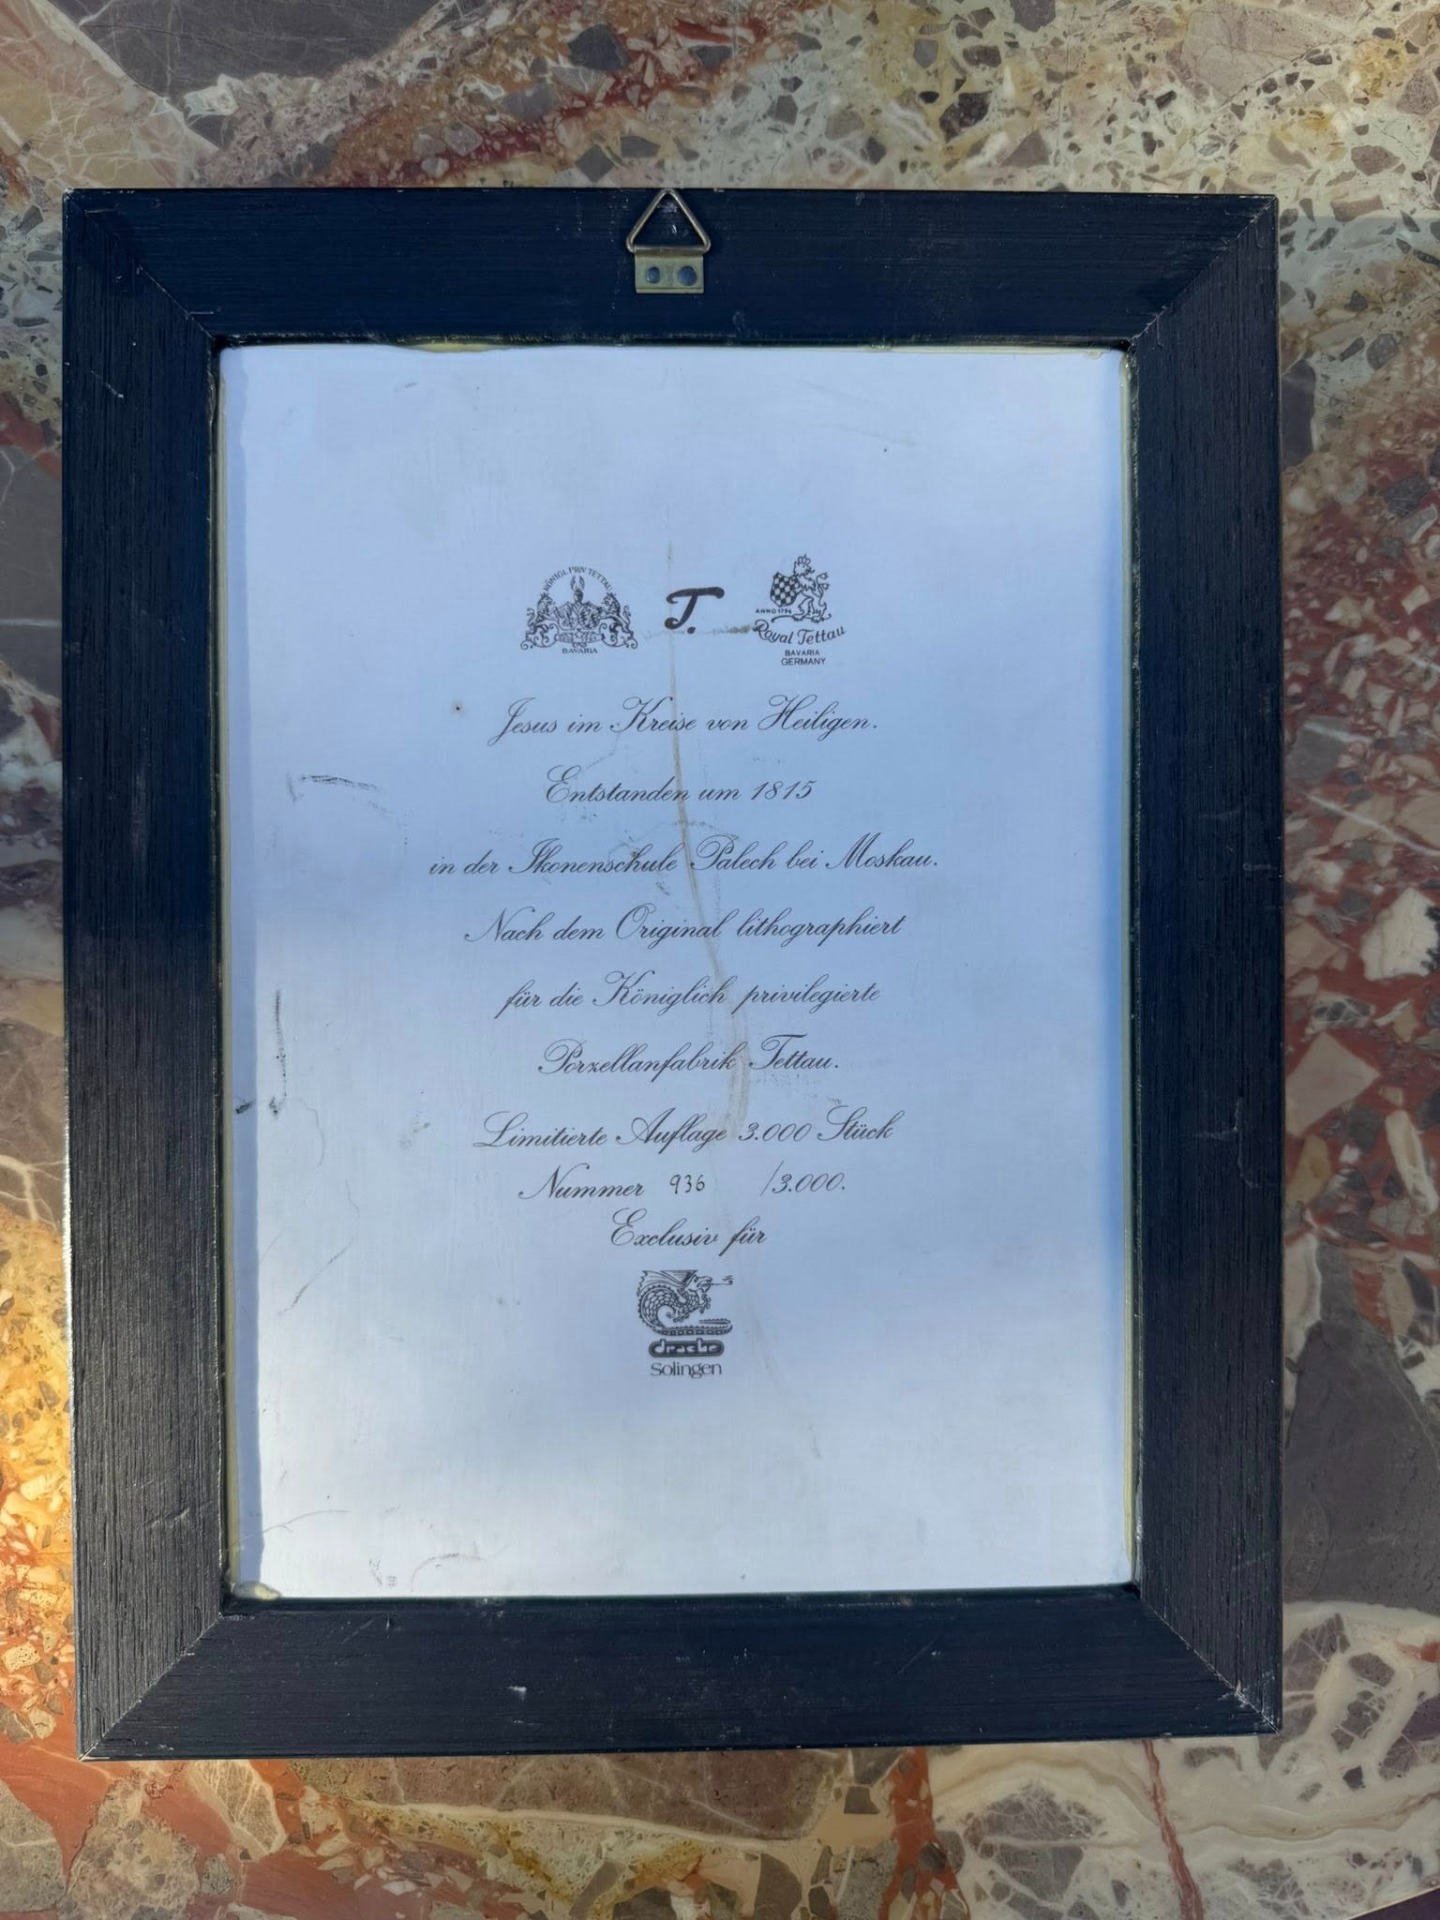 KÖNIGL. PRIV. TETTAU
BAVARIA
T.
ANNO 1794
Royal Tettau
BAVARIA
GERMANY
Jesus im Kreise von Heiligen.
Entstanden um 1815
in der Ikonenschule Palech bei Moskau.
Nach dem Original lithographiert
für die Königlich privilegierte
Porzellanfabrik Tettau.
Limitierte Auflage 3.000 Stück
Nummer 936 /3.000.
Exclusiv für
drache
Solingen